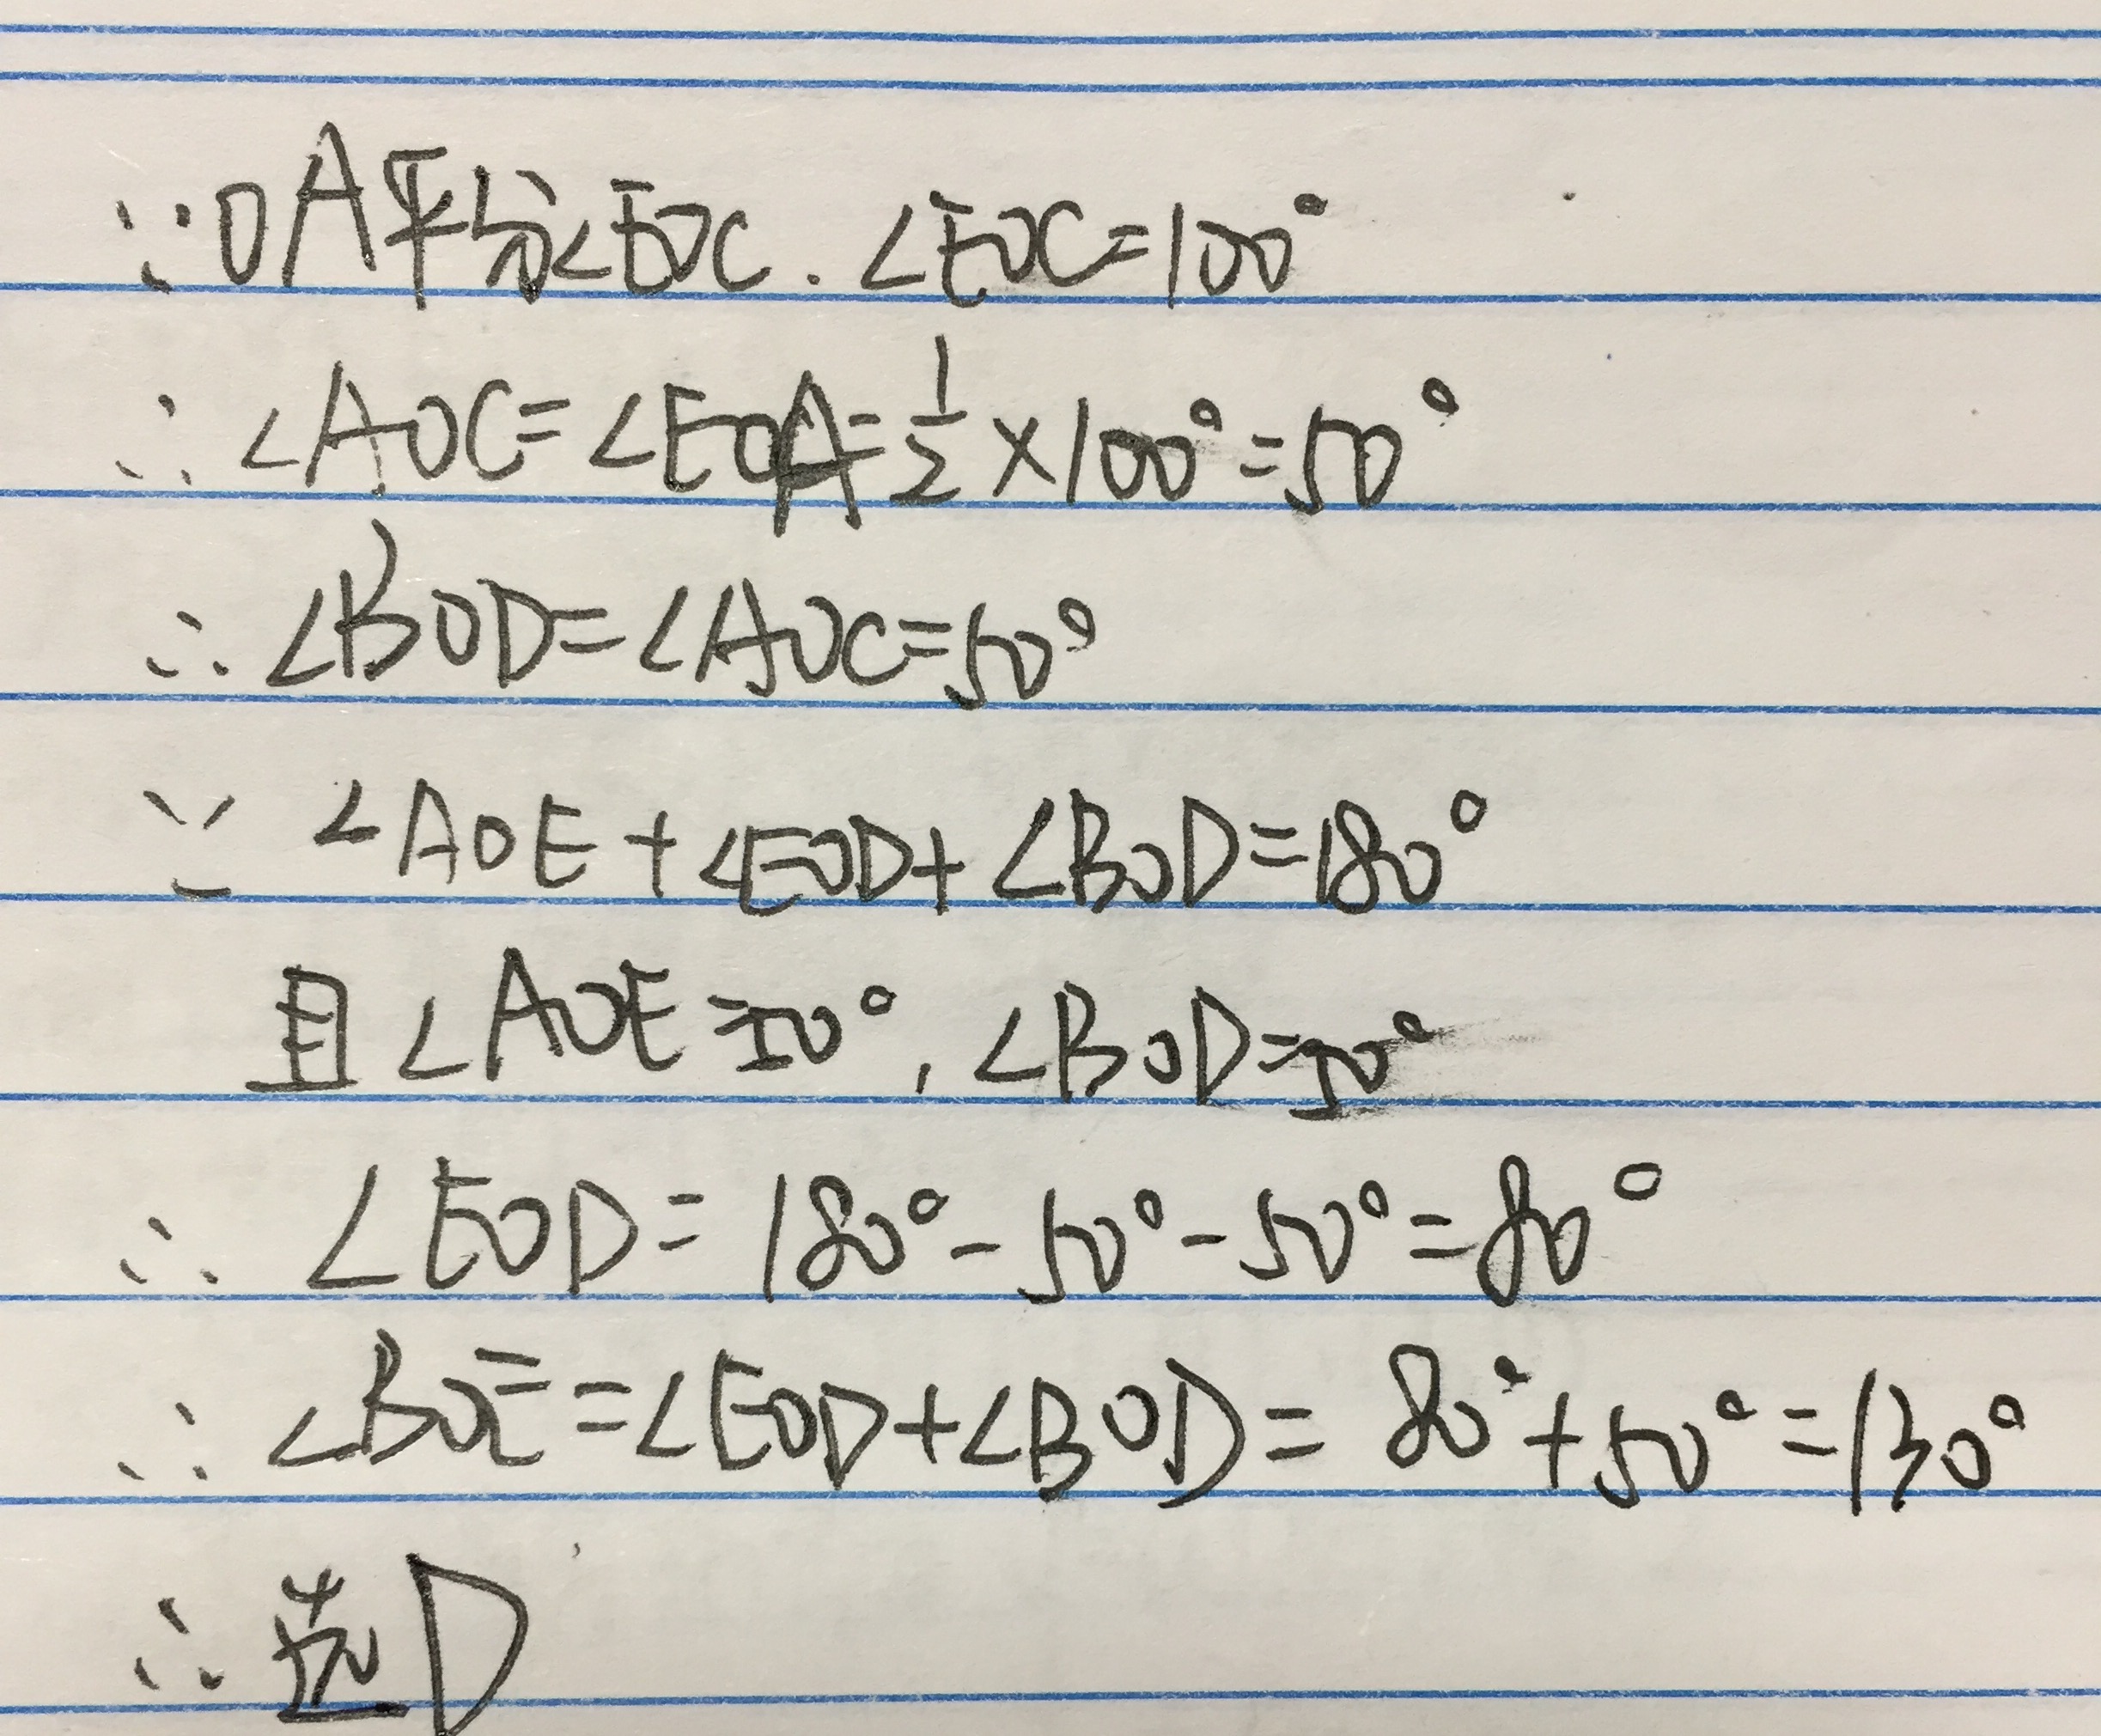 ∵OA平分∠EOC.∠EOC=100°
∴∠AOC=∠EOA=1/2×100°=50°
∴∠BOD=∠AOC=50°
∵∠AOE+∠EOD+∠BOD=180°
且∠AOE=50°,∠BOD=50°
∴∠EOD=180°-50°-50°=80°
∴∠BOE=∠EOD+∠BOD=80°+50°=130°
∴选D